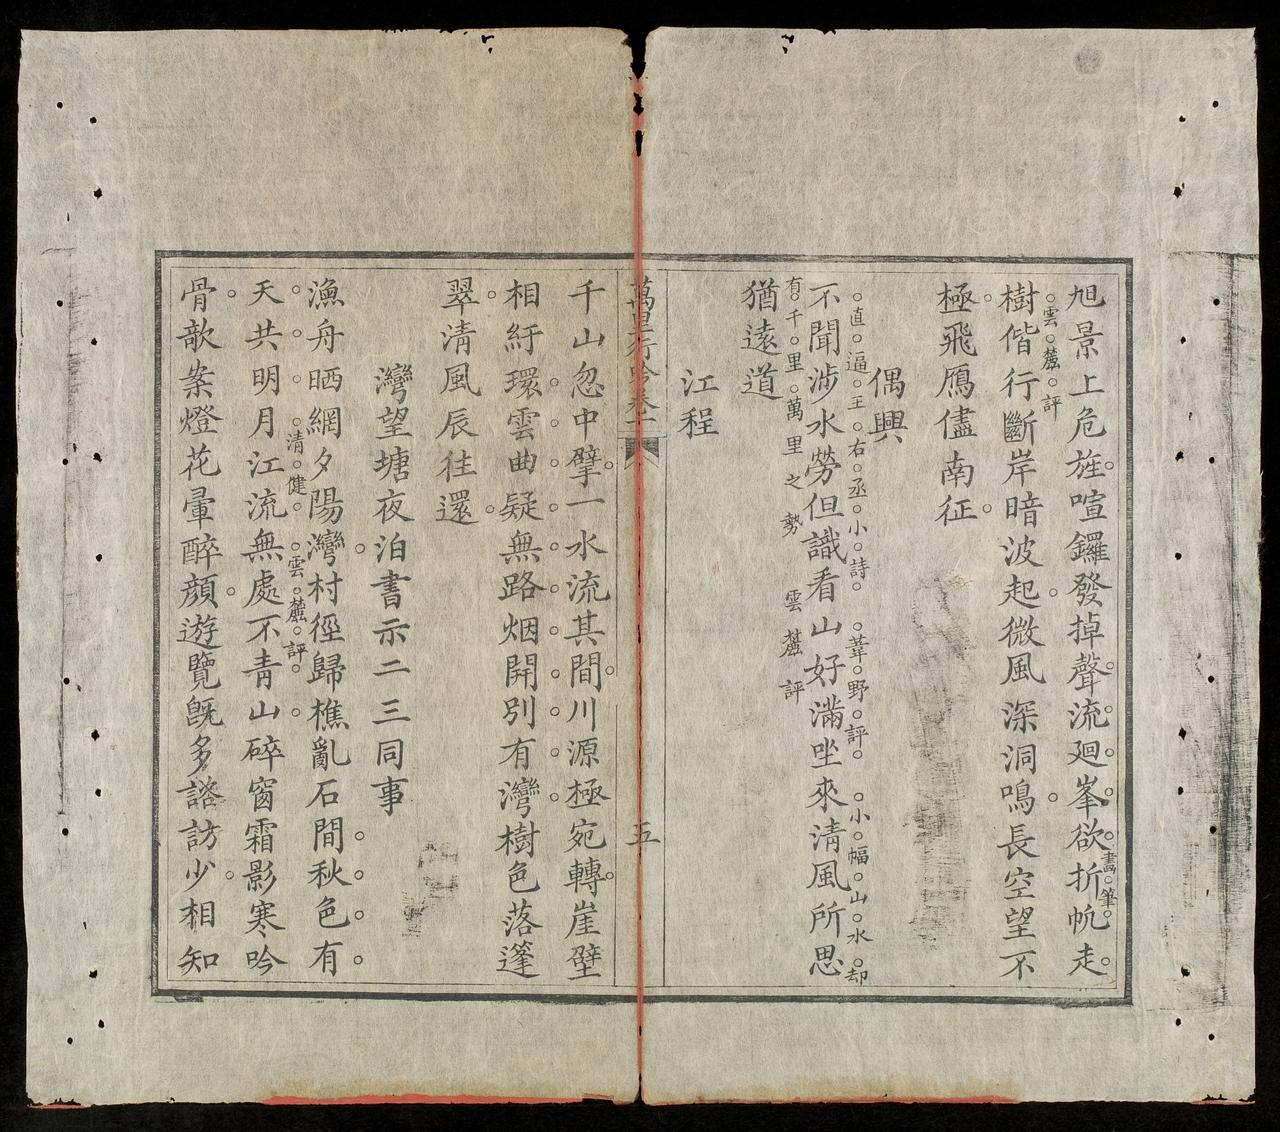 旭景上危旌喧鑼發掉聲流廻峯欲折帆走
畵筆
樹偕行斷岸暗波起微風深洞鳴長空望不
雲麓評
極飛鴈儘南征
偶興
直逼王右丞小詩 葦野評 小幅山水却
不聞涉水勞但識看山好滿坐來清風所思
有千里萬里之勢 雲麓評
猶遠道
江程
萬里行吟卷二
五
千山忽中擘一水流其間川源極宛轉崖壁
相紆環雲曲疑無路烟開別有灣樹色落篷
翠清風辰徃還
灣望塘夜泊書示二三同事
漁舟晒網夕陽灣村徑歸樵亂石間秋色有
清健 雲麓評
天共明月江流無處不青山碎窗霜影寒吟
骨歆案燈花暈醉顏遊覽旣多諮訪少相知